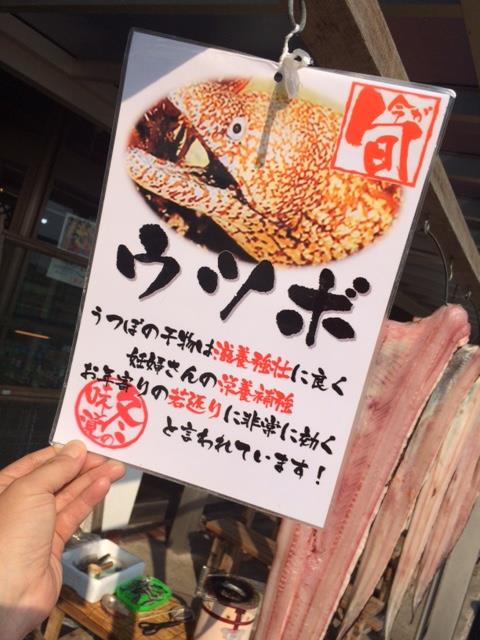 今が
旬
ウツボ
うつぼの干物は滋養強壮に良く
妊婦さんの栄養補強
お年寄りの若返りに非常に効く
と言われています!
冬の
味覚